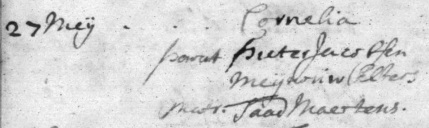 27 Meij . . . Cornelia
parent Pieter Jacobsen
Meijnuw Elters
Maertens.